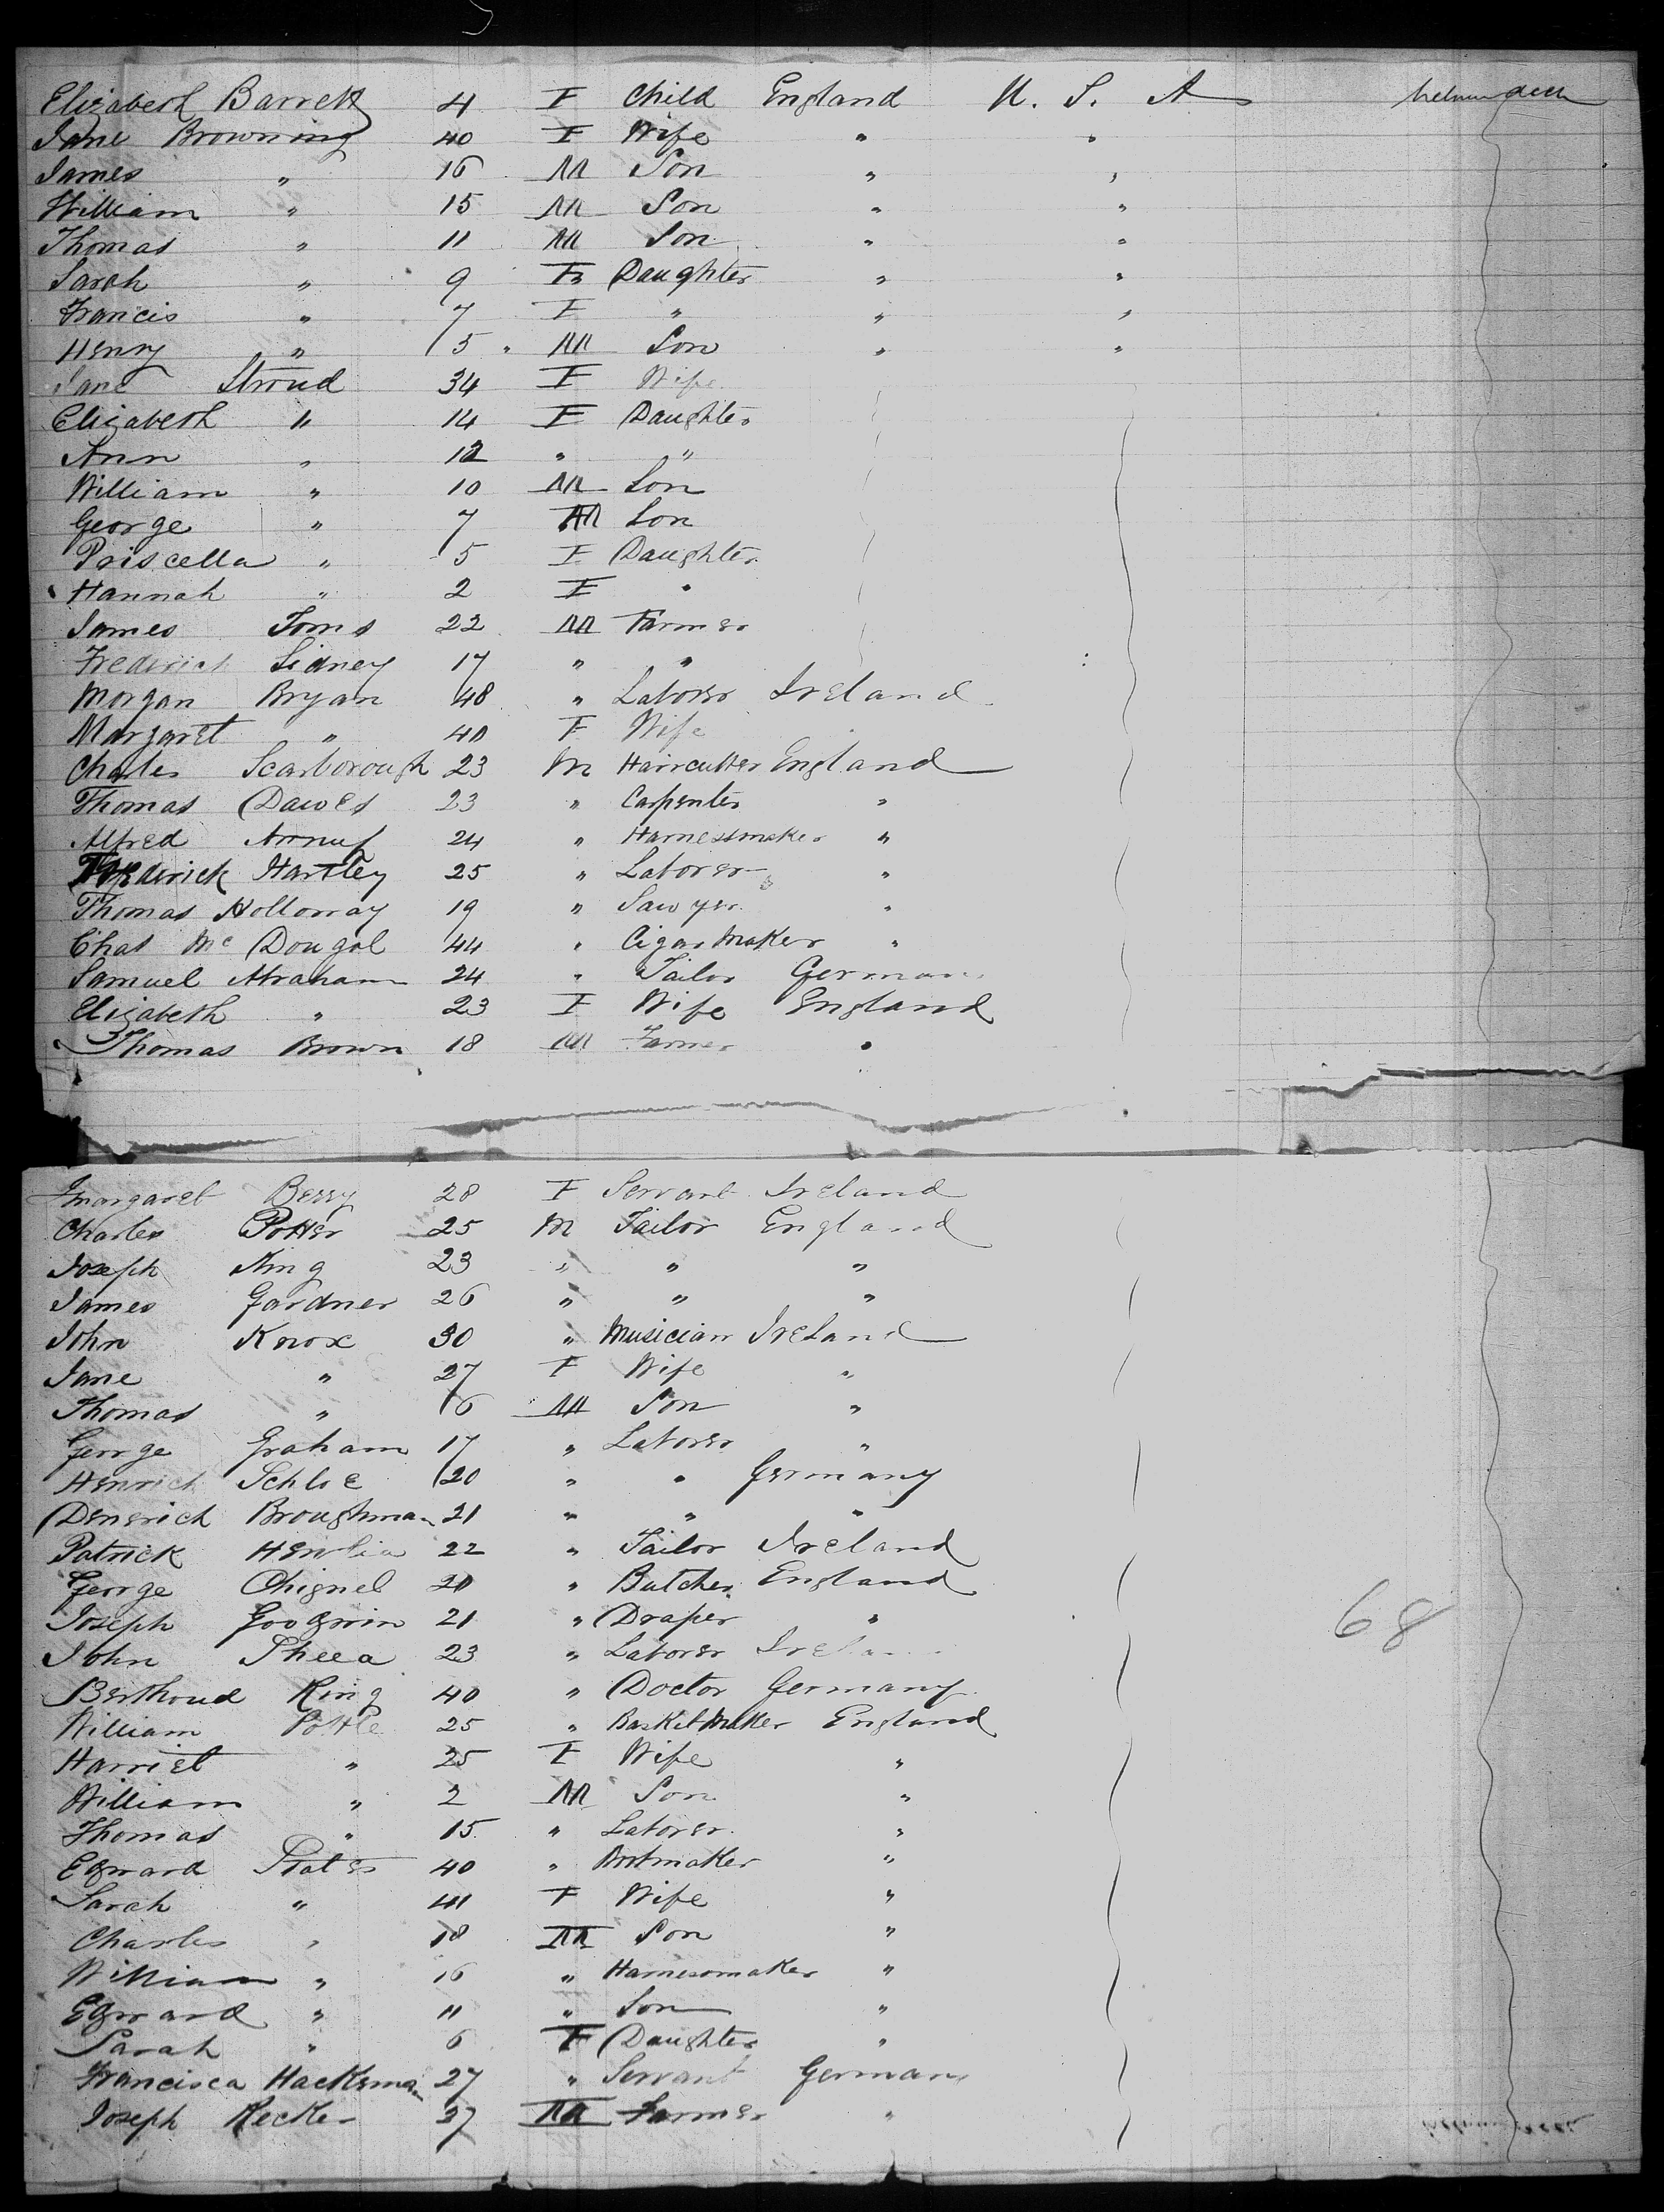 Elizabeth Barrett 4 F Child England U. S. A
Jane Browning 40 F Wife " "
James " 16 M Son " "
William " 15 M Son " "
Thomas " 11 M Son " "
Sarah " 9 F Daughter " "
Francis " 7 F " " "
Henry " 5 M Son " "
Jane Stroud 34 F Wife
Elizabeth " 14 F Daughter
Ann " 12 " "
William " 10 M Son
George " 7 M Son
Priscella " 5 F Daughter
Hannah " 2 F "
James Toms 22 M Farmer
Frederick Sidney 17 " "
Morgan Bryan 48 " Laborer Ireland
Margaret " 40 F Wife
Charles Scarborough 23 M Haircutter England
Thomas Dawes 23 " Carpenter "
Alfred 24 " Harnessmaker "
Frederick Hartley 25 " Laborer "
Thomas Holloway 19 " Sawyer "
Chas Mc Dougal 44 " Cigar Maker "
Samuel Abraham 24 " Tailor German
Elizabeth " 23 F Wife England
Thomas Brown 18 M Farmer "
Margaret Berry 28 F Servant Ireland
Charles Potter 25 M Tailor England
Joseph King 23 " " "
James Gardner 26 " " "
John Knox 30 " Musician Ireland
Jane " 27 F Wife "
Thomas " 6 M Son "
George Graham 17 " Laborer "
Henrich Schloe 20 " " Germany
Denerich Broughman 21 " " "
Patrick 22 " Tailor Ireland
George Chignel 20 " Butcher England
Joseph Goodwin 21 " Draper "
John Sheea 23 " Laborer Irela
Berthoud King 40 " Doctor Germany
William Pottle 25 " Basket Maker England
Harriet " 25 F Wife "
William " 2 M Son "
Thomas " 15 " Laborer "
Edward Slater 40 " Bootmaker "
Sarah " 41 F Wife "
Charles " 18 M Son "
William " 16 " Harnessmaker "
Edward " 11 " Son "
Sarah " 6 F Daughter "
Francisca Hackeman 27 " Servant German
Joseph Kecker 37 M Farmer "
68